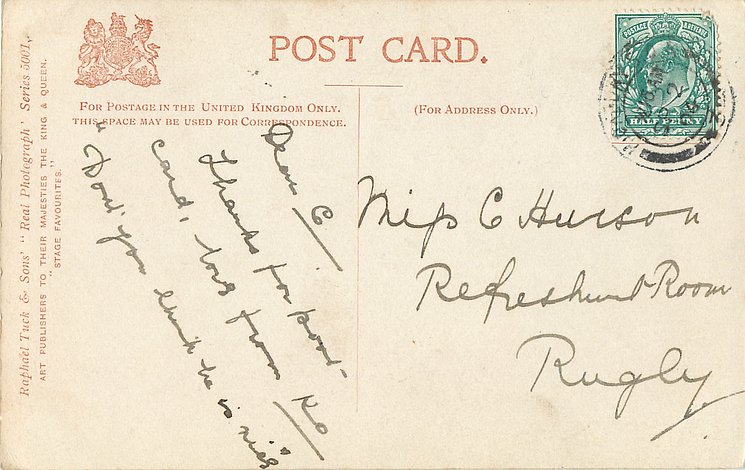 POST CARD.
FOR POSTAGE IN THE UNITED KINGDOM ONLY.
THIS SPACE MAY BE USED FOR CORRESPONDENCE.
(FOR ADDRESS ONLY.)
Raphael Tuck & Sons' "Real Photograph" Series 5001.
ART PUBLISHERS TO THEIR MAJESTIES THE KING & QUEEN.
"STAGE FAVOURITES."
POSTAGE & REVENUE
HALF PENNY
Dear C
Thanks for post-
card, love from
"Dont you think he is nice"
Miss C Hurson
Refreshmt Room
Rugby